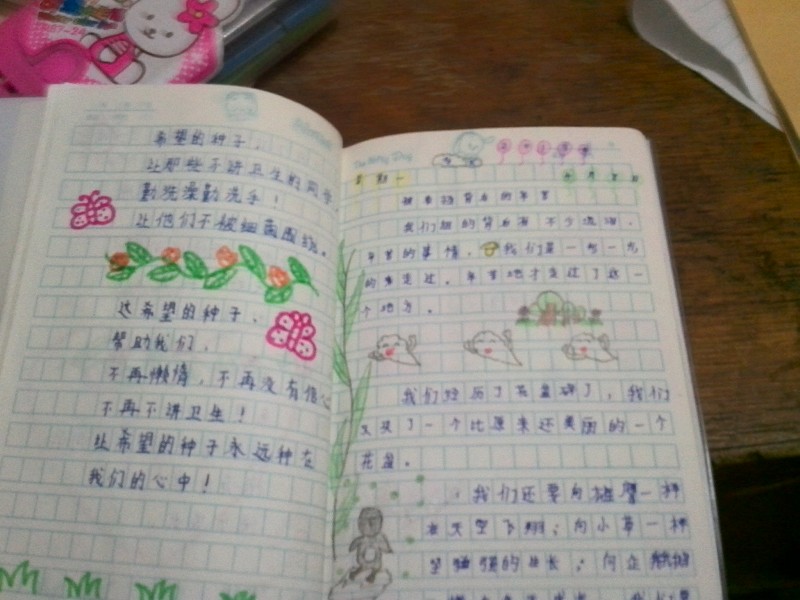 希望的种子,
让那些不讲卫生的同学
勤洗澡勤洗手!
让他们不被细菌围绕。
这希望的种子,
帮助我们,
不再懒惰,不再没有信心
不再不讲卫生!
让希望的种子永远种在
我们的心中!
星期一
背后的辛苦
我们组的背后有不少波
辛苦的事情。我们是一步一步
的走过。辛苦地才走过了这一
个地方。
我们经历了花盆碎了,我们
又买了一个比原来还美丽的一个
花盆。
,我们还要向一样
在天空飞翔;向小草一样
坚强的生长;向企